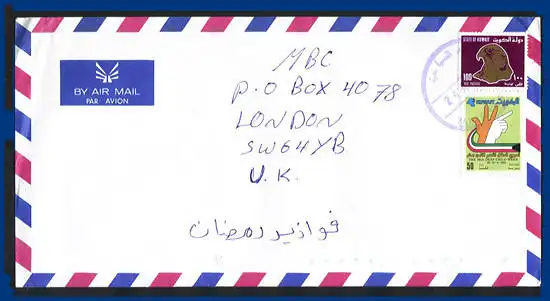 BY AIR MAIL
PAR AVION
MBC
P.O BOX 4078
LONDON
SW64YB
U.K.
فوازير رمضان
STATE OF KUWAIT دولة الكويت
100 ١٠٠
KUWAIT الكويت
50